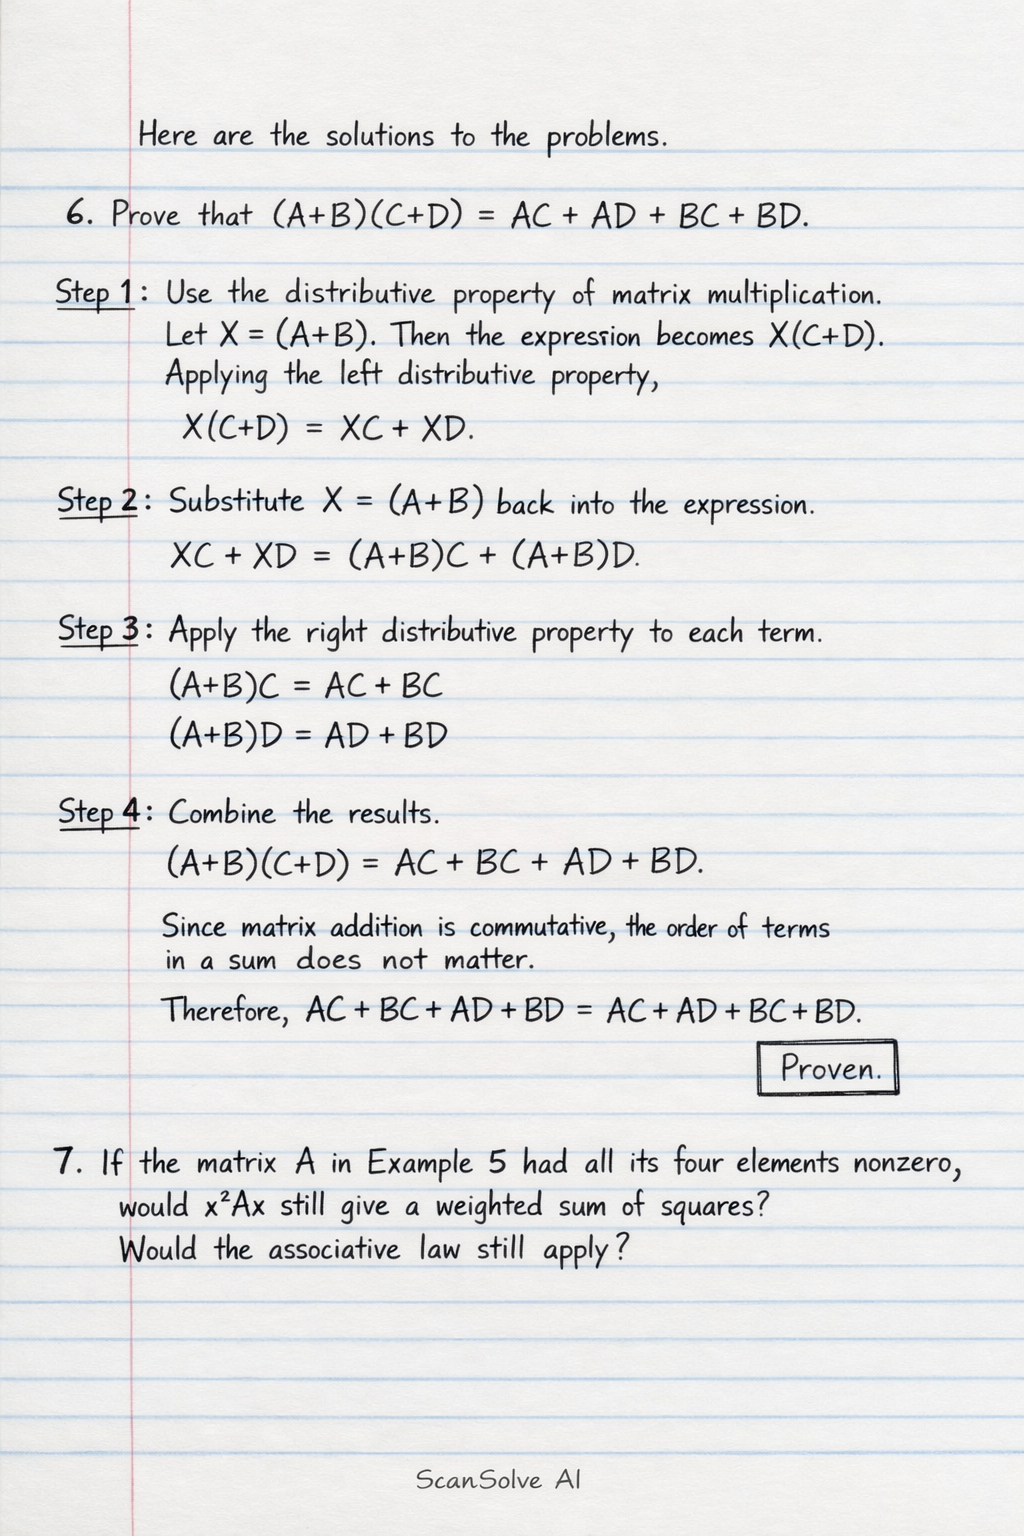 Here are the solutions to the problems.
6. Prove that (A+B)(C+D) = AC + AD + BC + BD.
Step 1: Use the distributive property of matrix multiplication.
Let X = (A+B). Then the expression becomes X(C+D).
Applying the left distributive property,
X(C+D) = XC + XD.
Step 2: Substitute X = (A+B) back into the expression.
XC + XD = (A+B)C + (A+B)D.
Step 3: Apply the right distributive property to each term.
(A+B)C = AC + BC
(A+B)D = AD + BD
Step 4: Combine the results.
(A+B)(C+D) = AC + BC + AD + BD.
Since matrix addition is commutative, the order of terms
in a sum does not matter.
Therefore, AC + BC + AD + BD = AC + AD + BC + BD.
Proven.
7. If the matrix A in Example 5 had all its four elements nonzero,
would x²Ax still give a weighted sum of squares?
Would the associative law still apply?
ScanSolve AI